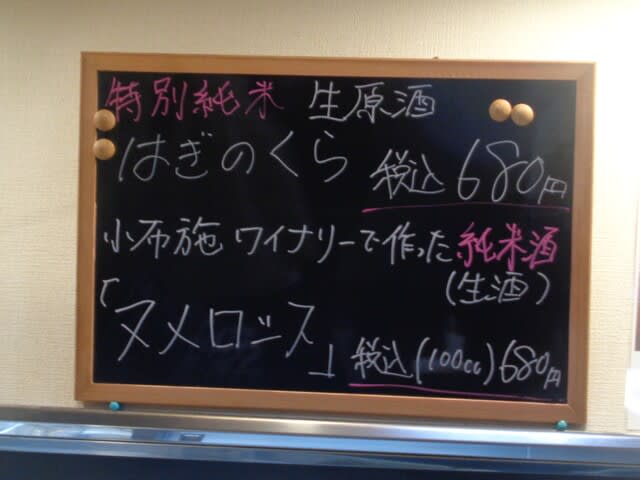 特別純米 生原酒
はぎのくら 税込 680円
小布施 ワイナリーで作った 純米酒
(生酒)
「ヌメロシス」 税込 (100cc) 680円